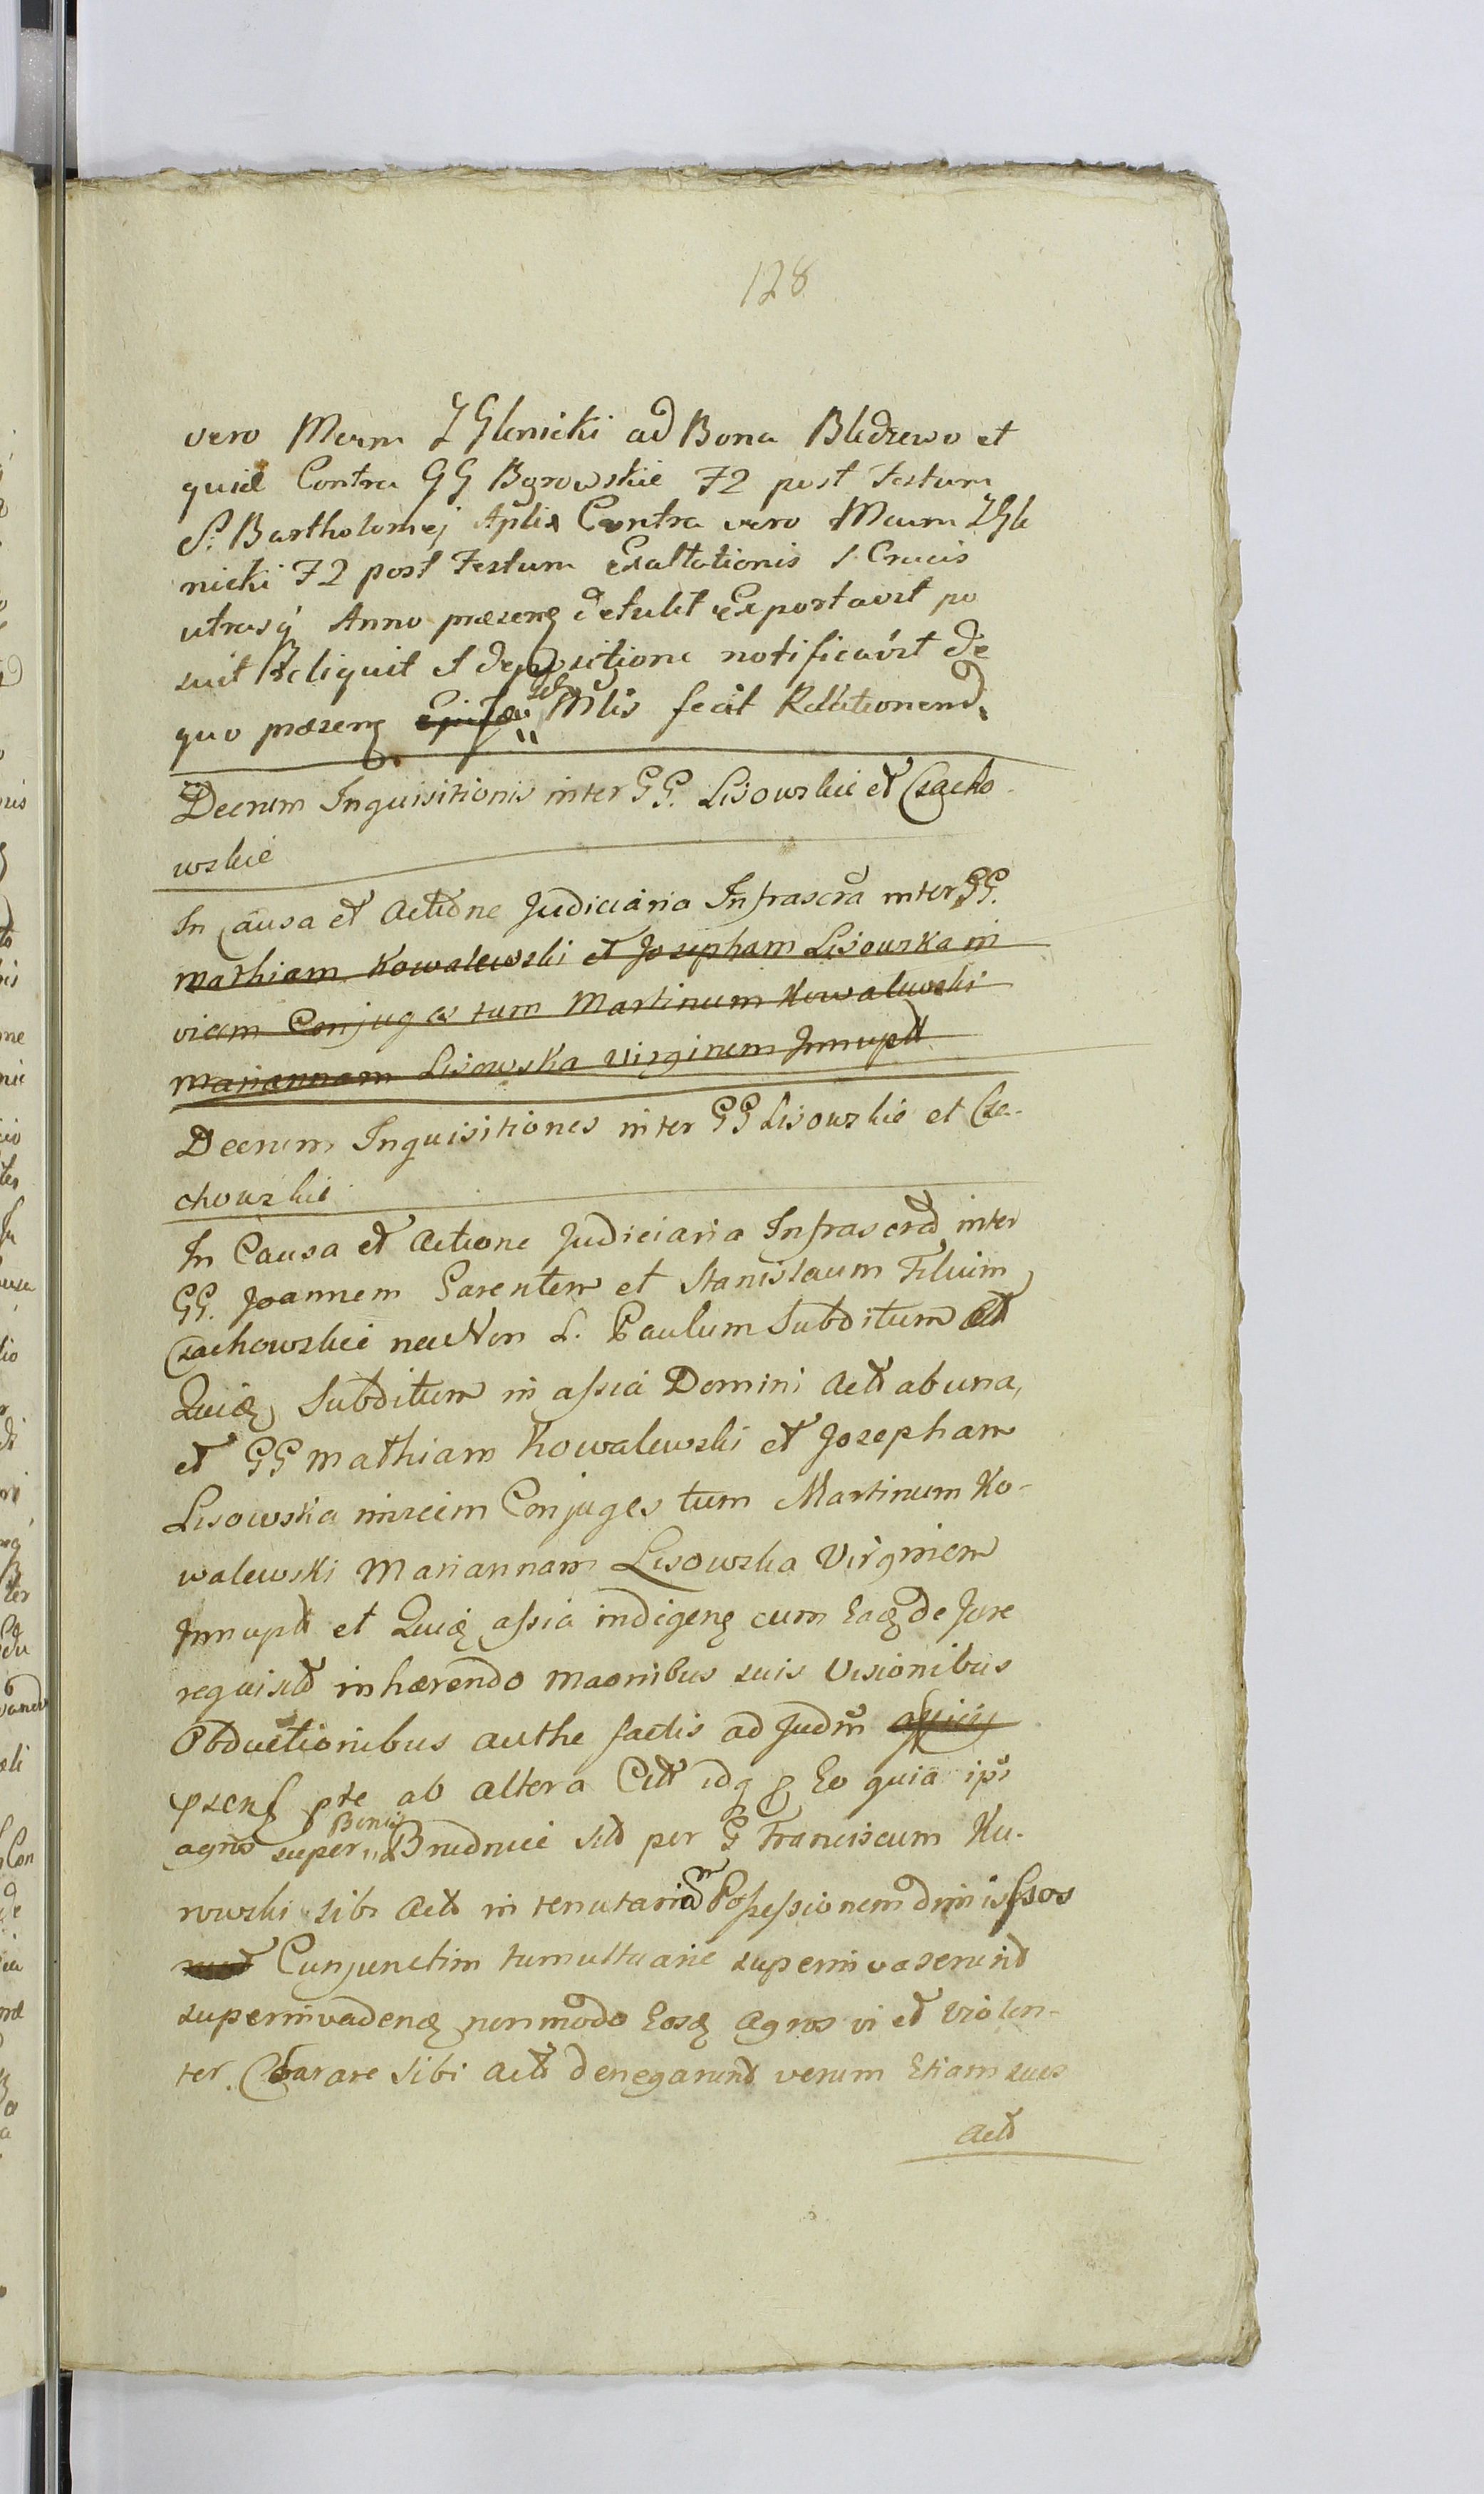 128
vero Mcrm Zglenicki ad Bona Bledzewo et
quid Contra GG Bgrowskie F2 post Festum
S. Bartholomej Aplis Contra vero Mcum Zgle
nicki F2 post Festum Exaltationis S Crucis
utrasq Anno praesenz detulit Exportavit po
suit Reliquit et depositione notificavit de
quo praesenz Mlis fecit Relationend.
Decrum Inquisitionis inter GG. Lisowskie et Czacho
wskie
In Causa et Actione Judiciaria Infrascra inter GG.
Mathiam Kowalewski et Josepham Lisowska in
vicem Conjuges tum Martinum Kowalewski
Mariannam Lisowska Virginem Innupt
Decrum Inquisitiones inter GG Lisowskie et Cza-
chowskie
In Causa et Actione Judiciaria Infrascra inter
GG. Joannem Parentem et Stanislaum Filium
Czachowskie necNon L. Paulum Subditum
Quiq Subditum in assia Domini Act ab una,
et GG Mathiam Kowalewski et Josepham
Lisowska invicem Conjuges tum Martinum Ko-
walewski Mariannam Lisowska Virginem
Innupt et Quiq assia indigenq cum Eaq de Jure
requisit inhaerendo maonibus suis Visionibus
Obductionibus authe factis ad Judm
psenz pte ab altera Citt idq p Eo quia ipsi
agros super Bonis Brudnice sit per G Franciscum Ku-
rowski sibi Act in tenutariam Possessionem dimissos
Cunjunctim tumultuarie superinvaserunt
superinvadenq nonmodo Eosq Agros vi et violen-
ter Obarare sibi Act denegarunt verum Etiam suos
Act